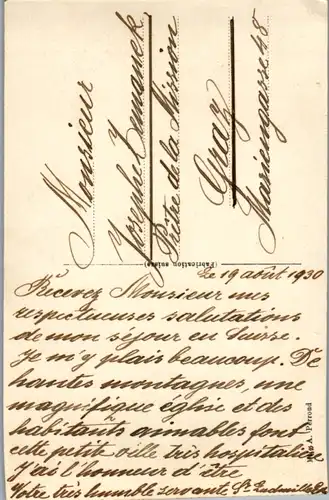 Monsieur
Joseph Zemanek
Prêtre de la Mission
Graz
Mariengasse 48
(Fabrication suisse)
Le 19 août 1930
Recevez Monsieur mes
respectueuses salutations
de mon séjour en Suisse.
Je m'y plais beaucoup. De
hautes montagnes, une
magnifique église et des
habitants aimables font
cette petite ville très hospitalière
J'ai l'honneur d'être
Votre très humble servante Sr Ludmille
A. Perroud